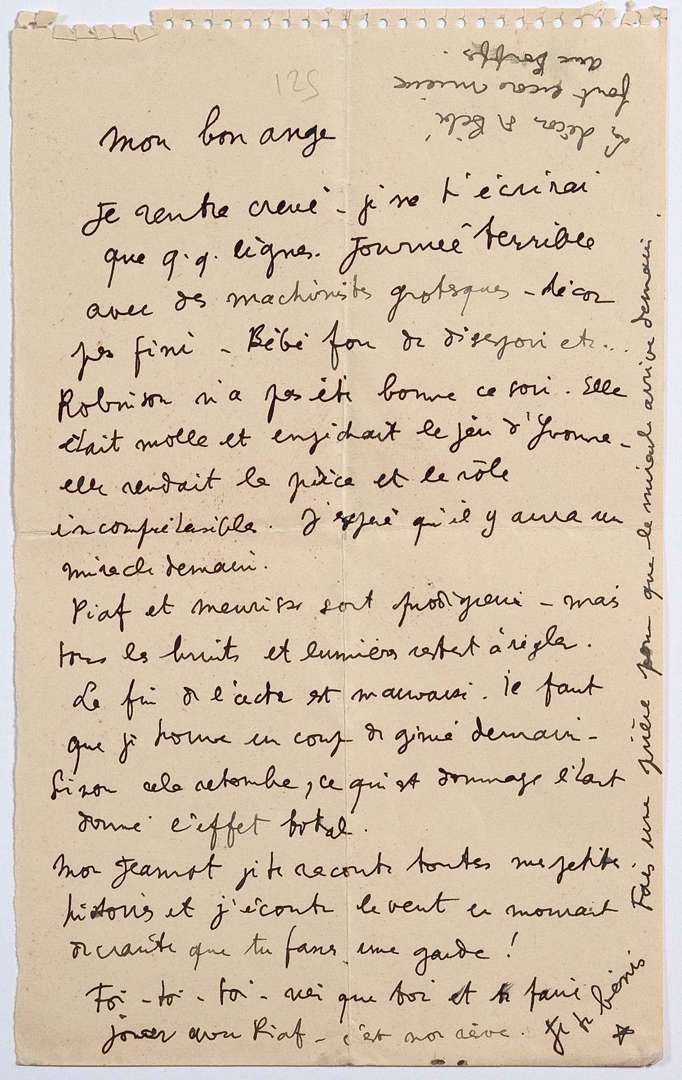 125
mon bon ange
Je rentre crevé - je ne t'écrirai
que q.q. lignes. Journée terrible
avec des machinistes grotesques - décor
pas fini - Bébé fou de désespoir etc...
Robinson n'a pas été bonne ce soir. Elle
était molle et engichait le jeu d'Yvonne -
elle rendait la pièce et le rôle
incompréhensibles. J'espère qu'il y aura un
miracle demain.
Piaf et meurisse sont prodigieux - mais
tous les bruits et lumières restent à régler.
La fin de l'acte est mauvaise. Il faut
que je trouve un coup de génie demain -
Sinon cela retombe, ce qui est dommage étant
donné l'effet total.
Mon Jeannot je te raconte toutes mes petites
histoires et j'écoute le vent en mourant
de crainte que tu fasses une garde !
Toi - toi - toi - rien que toi et te faire
jouer avec Piaf - c'est mon rêve.
Fais une prière pour que le miracle arrive demain.
Je te bénis
Le décor de Bébé
fait encore mieux
aux Bouffes.